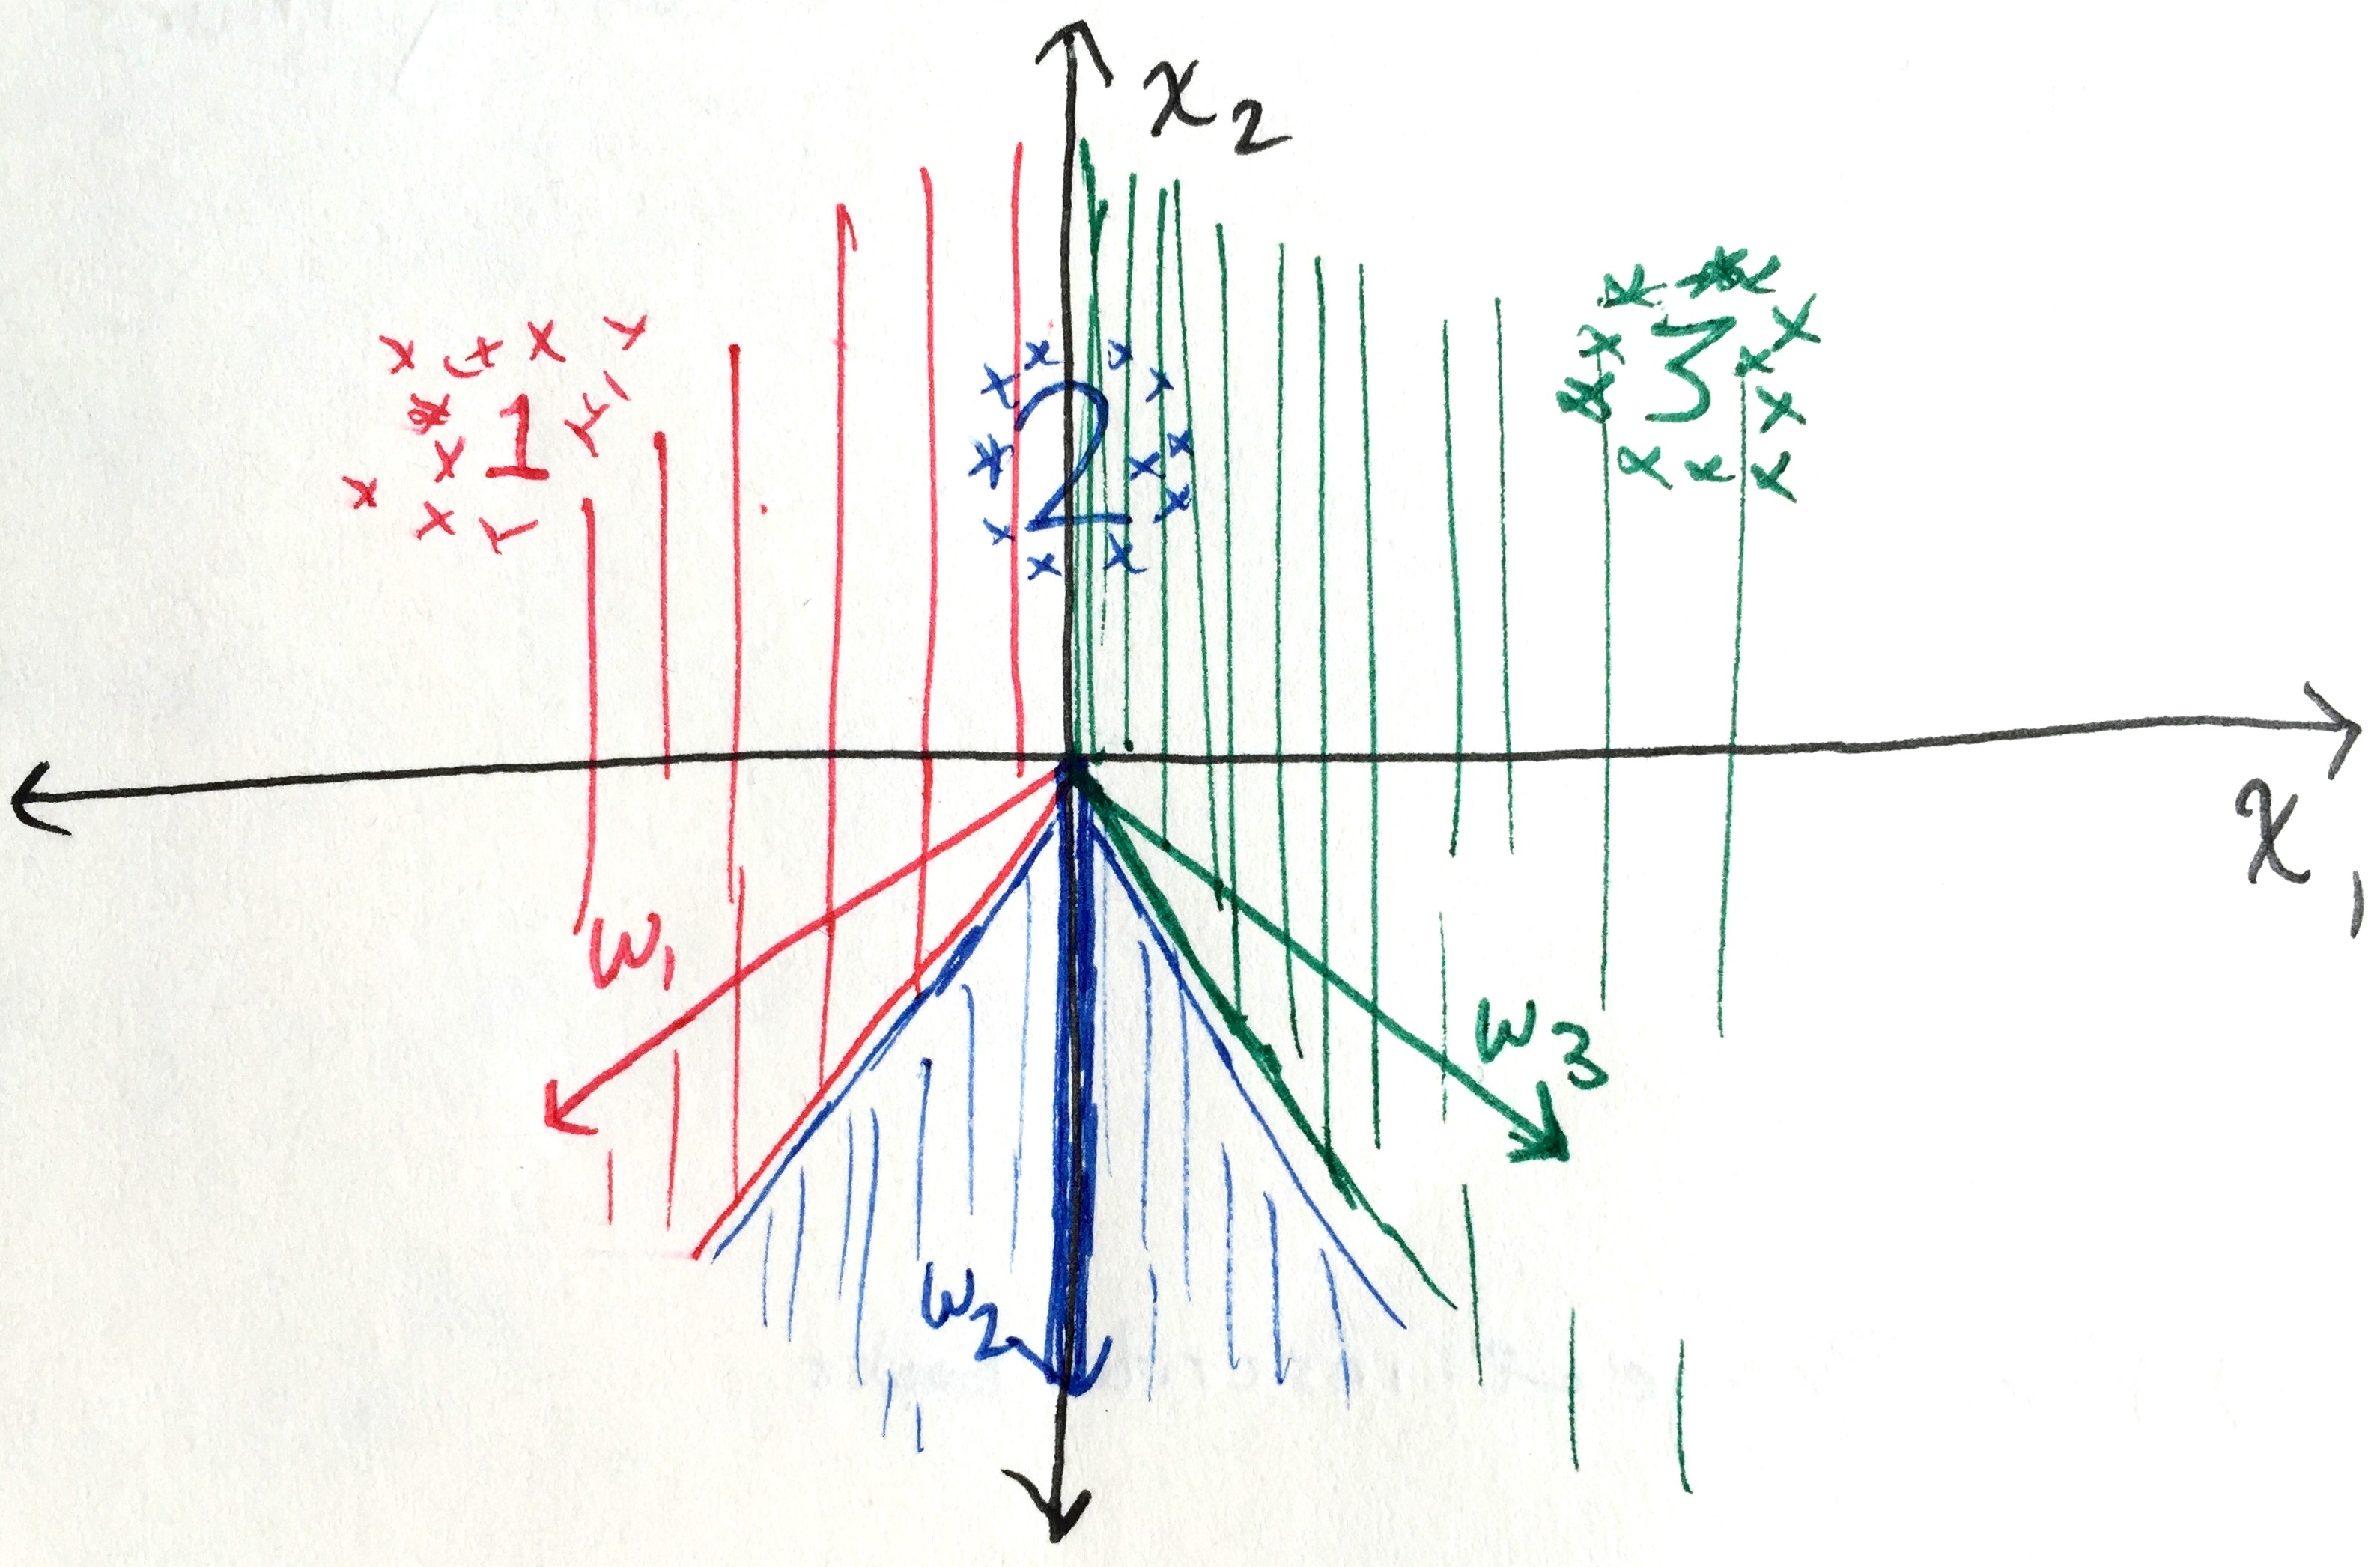 x₂
1 2 3
x₁
w₁
w₃
w₂